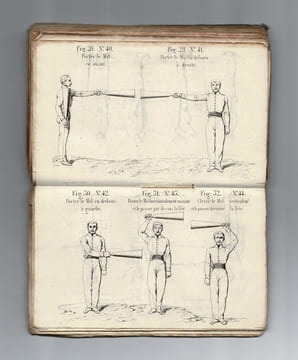 Fig. 28. N.º 40.
Porter le Mil
en avant
Fig. 29. N.º 41.
Porter le Mil en dehors
à droite
Fig. 30. N.º 42.
Porter le Mil en dedans
à gauche
Fig. 31. N.º 43.
Porter le Mil horizontalement en avant
et le passer par dessus la tête
Fig. 32. N.º 44.
Elever le Mil verticalem.t
et le passer derrière la tête